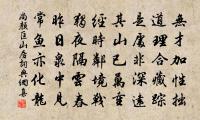 無才加性拙
道理合藏踪
是處非深遠
其山已萬重
經時鄰境戰
獨夜隔雲舂
昨日泉中見
常魚亦化龍
尚顏匡山居詞典網集